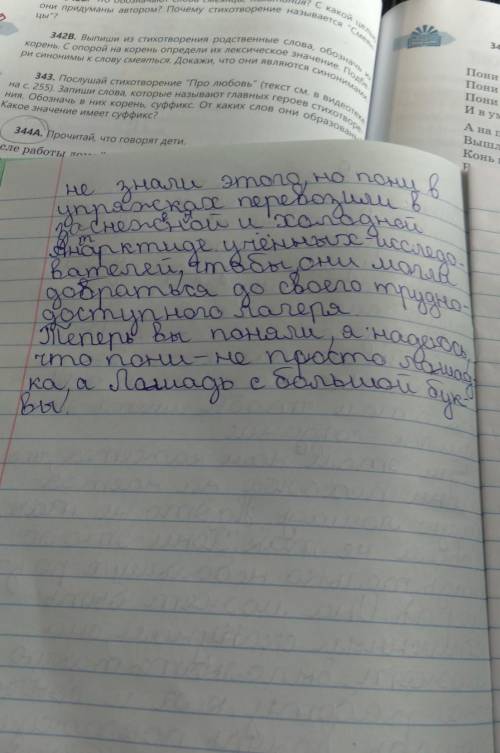 С какой целью
они придуманы автором? Почему стихотворение называется "Смеян
цы"?
342В. Выпиши из стихотворения родственные слова, обозначь их
корень. С опорой на корень определи их лексическое значение. Подбе
ри синонимы к слову смеяться. Докажи, что они являются синонимами
343. Послушай стихотворение "Про любовь" (текст см. в видеотек
на с. 255). Запиши слова, которые называют главных героев стихотворе
ния. Обозначь в них корень, суффикс. От каких слов они образован
Какое значение имеет суффикс?
344А. Прочитай, что говорят дети.
Пони
Пони
Пони
И в ум
А на
Вышл
Конь
не знали этого, но пони в
упряжках перевозили в
заснежной и холодной
Антарктиде учённых-исследо-
вателей, чтобы они могла
добраться до своего трудно-
доступного лагеря
Теперь вы поняли, я надеюсь,
что пони – не просто лошад-
ка, а Лошадь с большой бук-
вы.